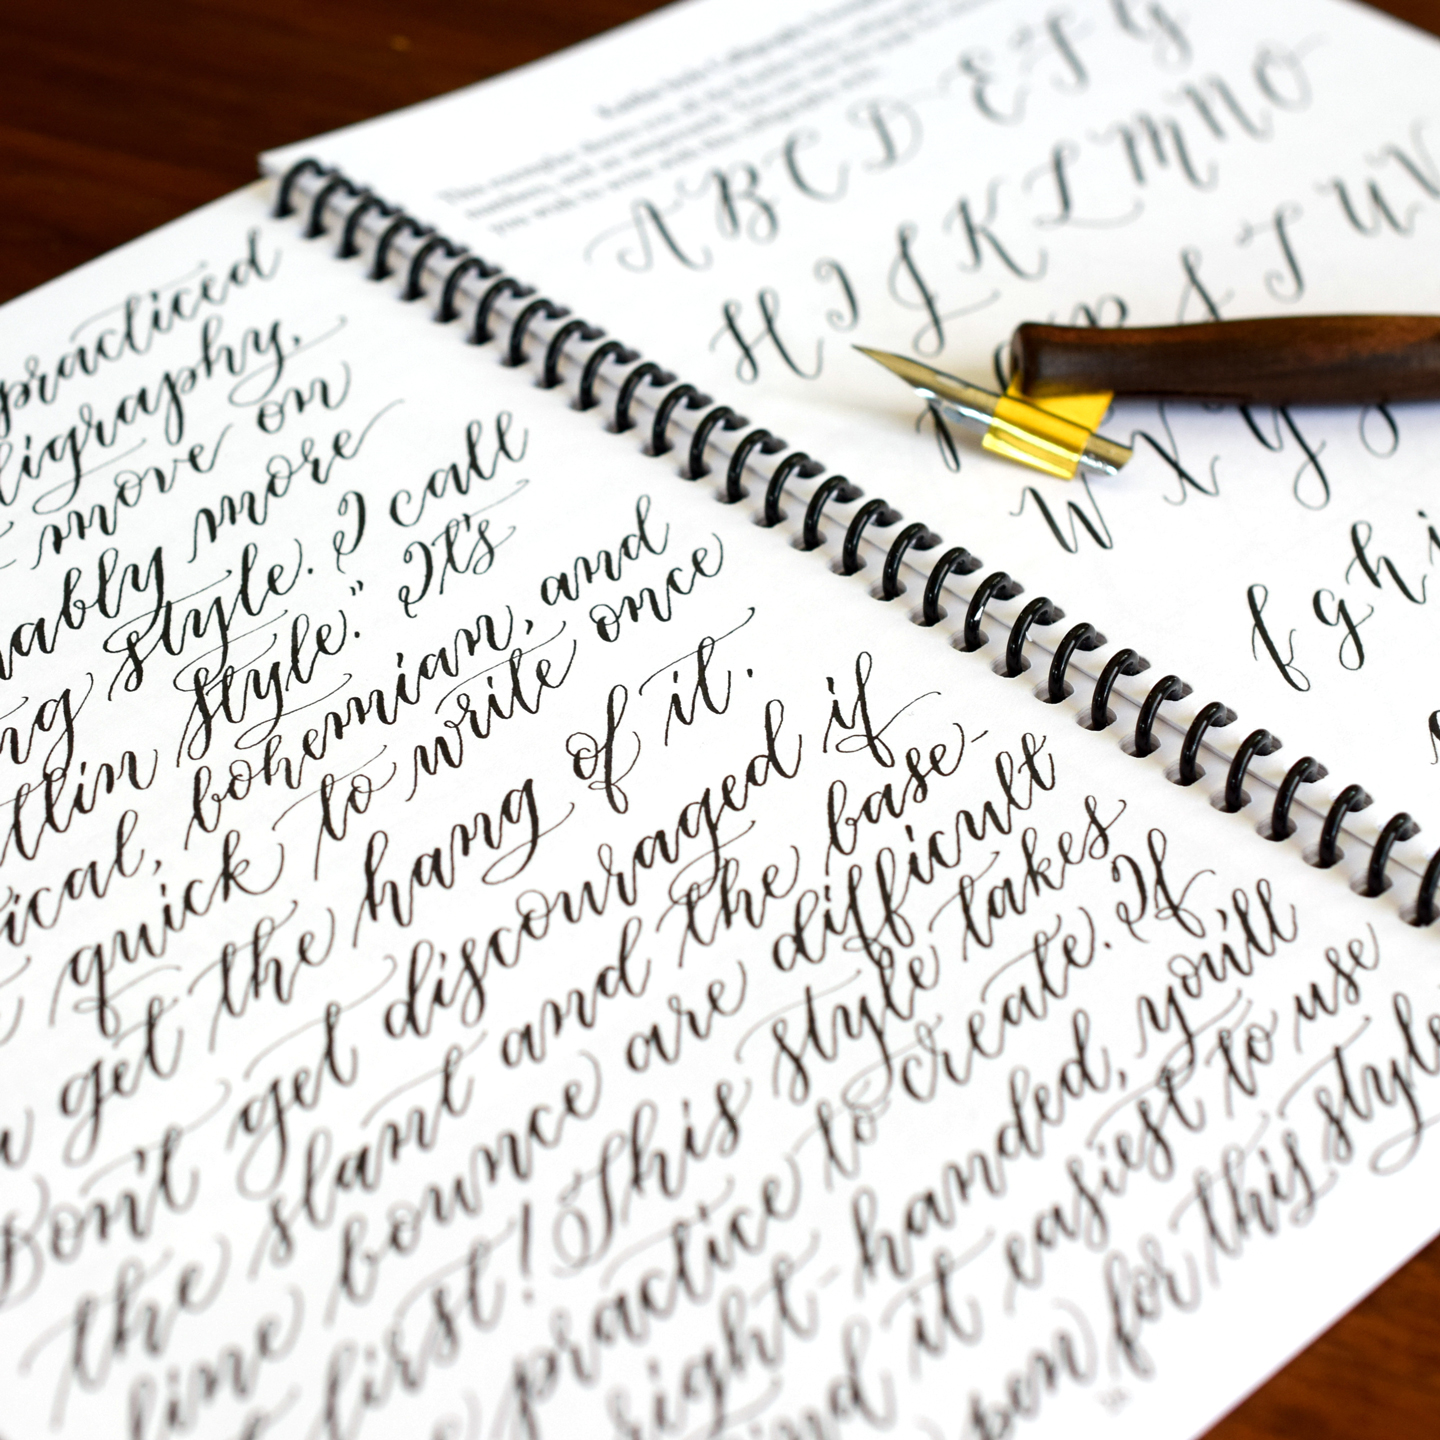 practiced
ligraphy,
move on
ably more
ng style. I call
tlin style." It's
ical, bohemian, and
quick to write once
get the hang of it.
Don't get discouraged if
the slant and the base-
line bounce are difficult
first! This style takes
practice to create. If
right-handed, you'll
find it easiest to use
pen for this style
A B C D E F G
H I J K L M N O
P S T U V
W X Y Z
f g h i